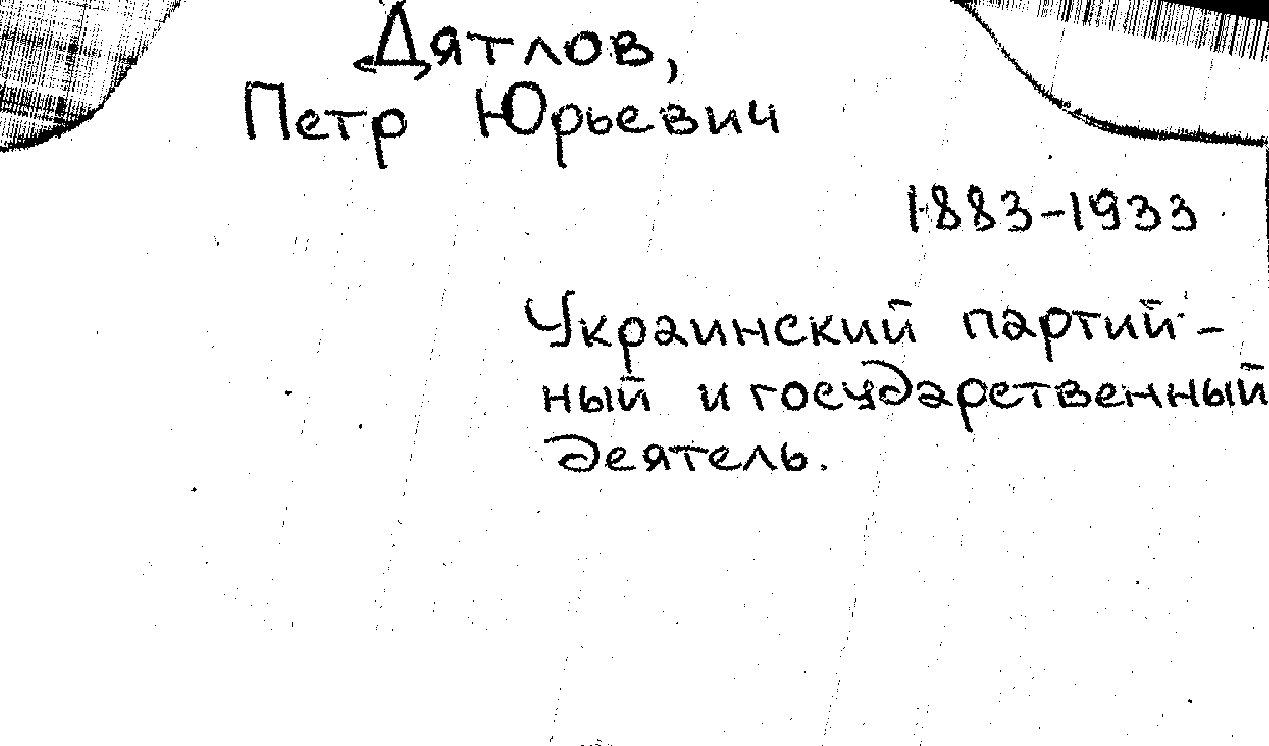 Дятлов,
Петр Юрьевич
1883-1933
Украинский партий-
ный и государственный
деятель.